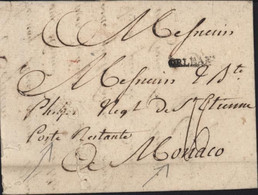 A Messieurs
ORLEANS
Messieurs J. Bte
Philip Negt de St Etienne
Poste Restante
A Monaco